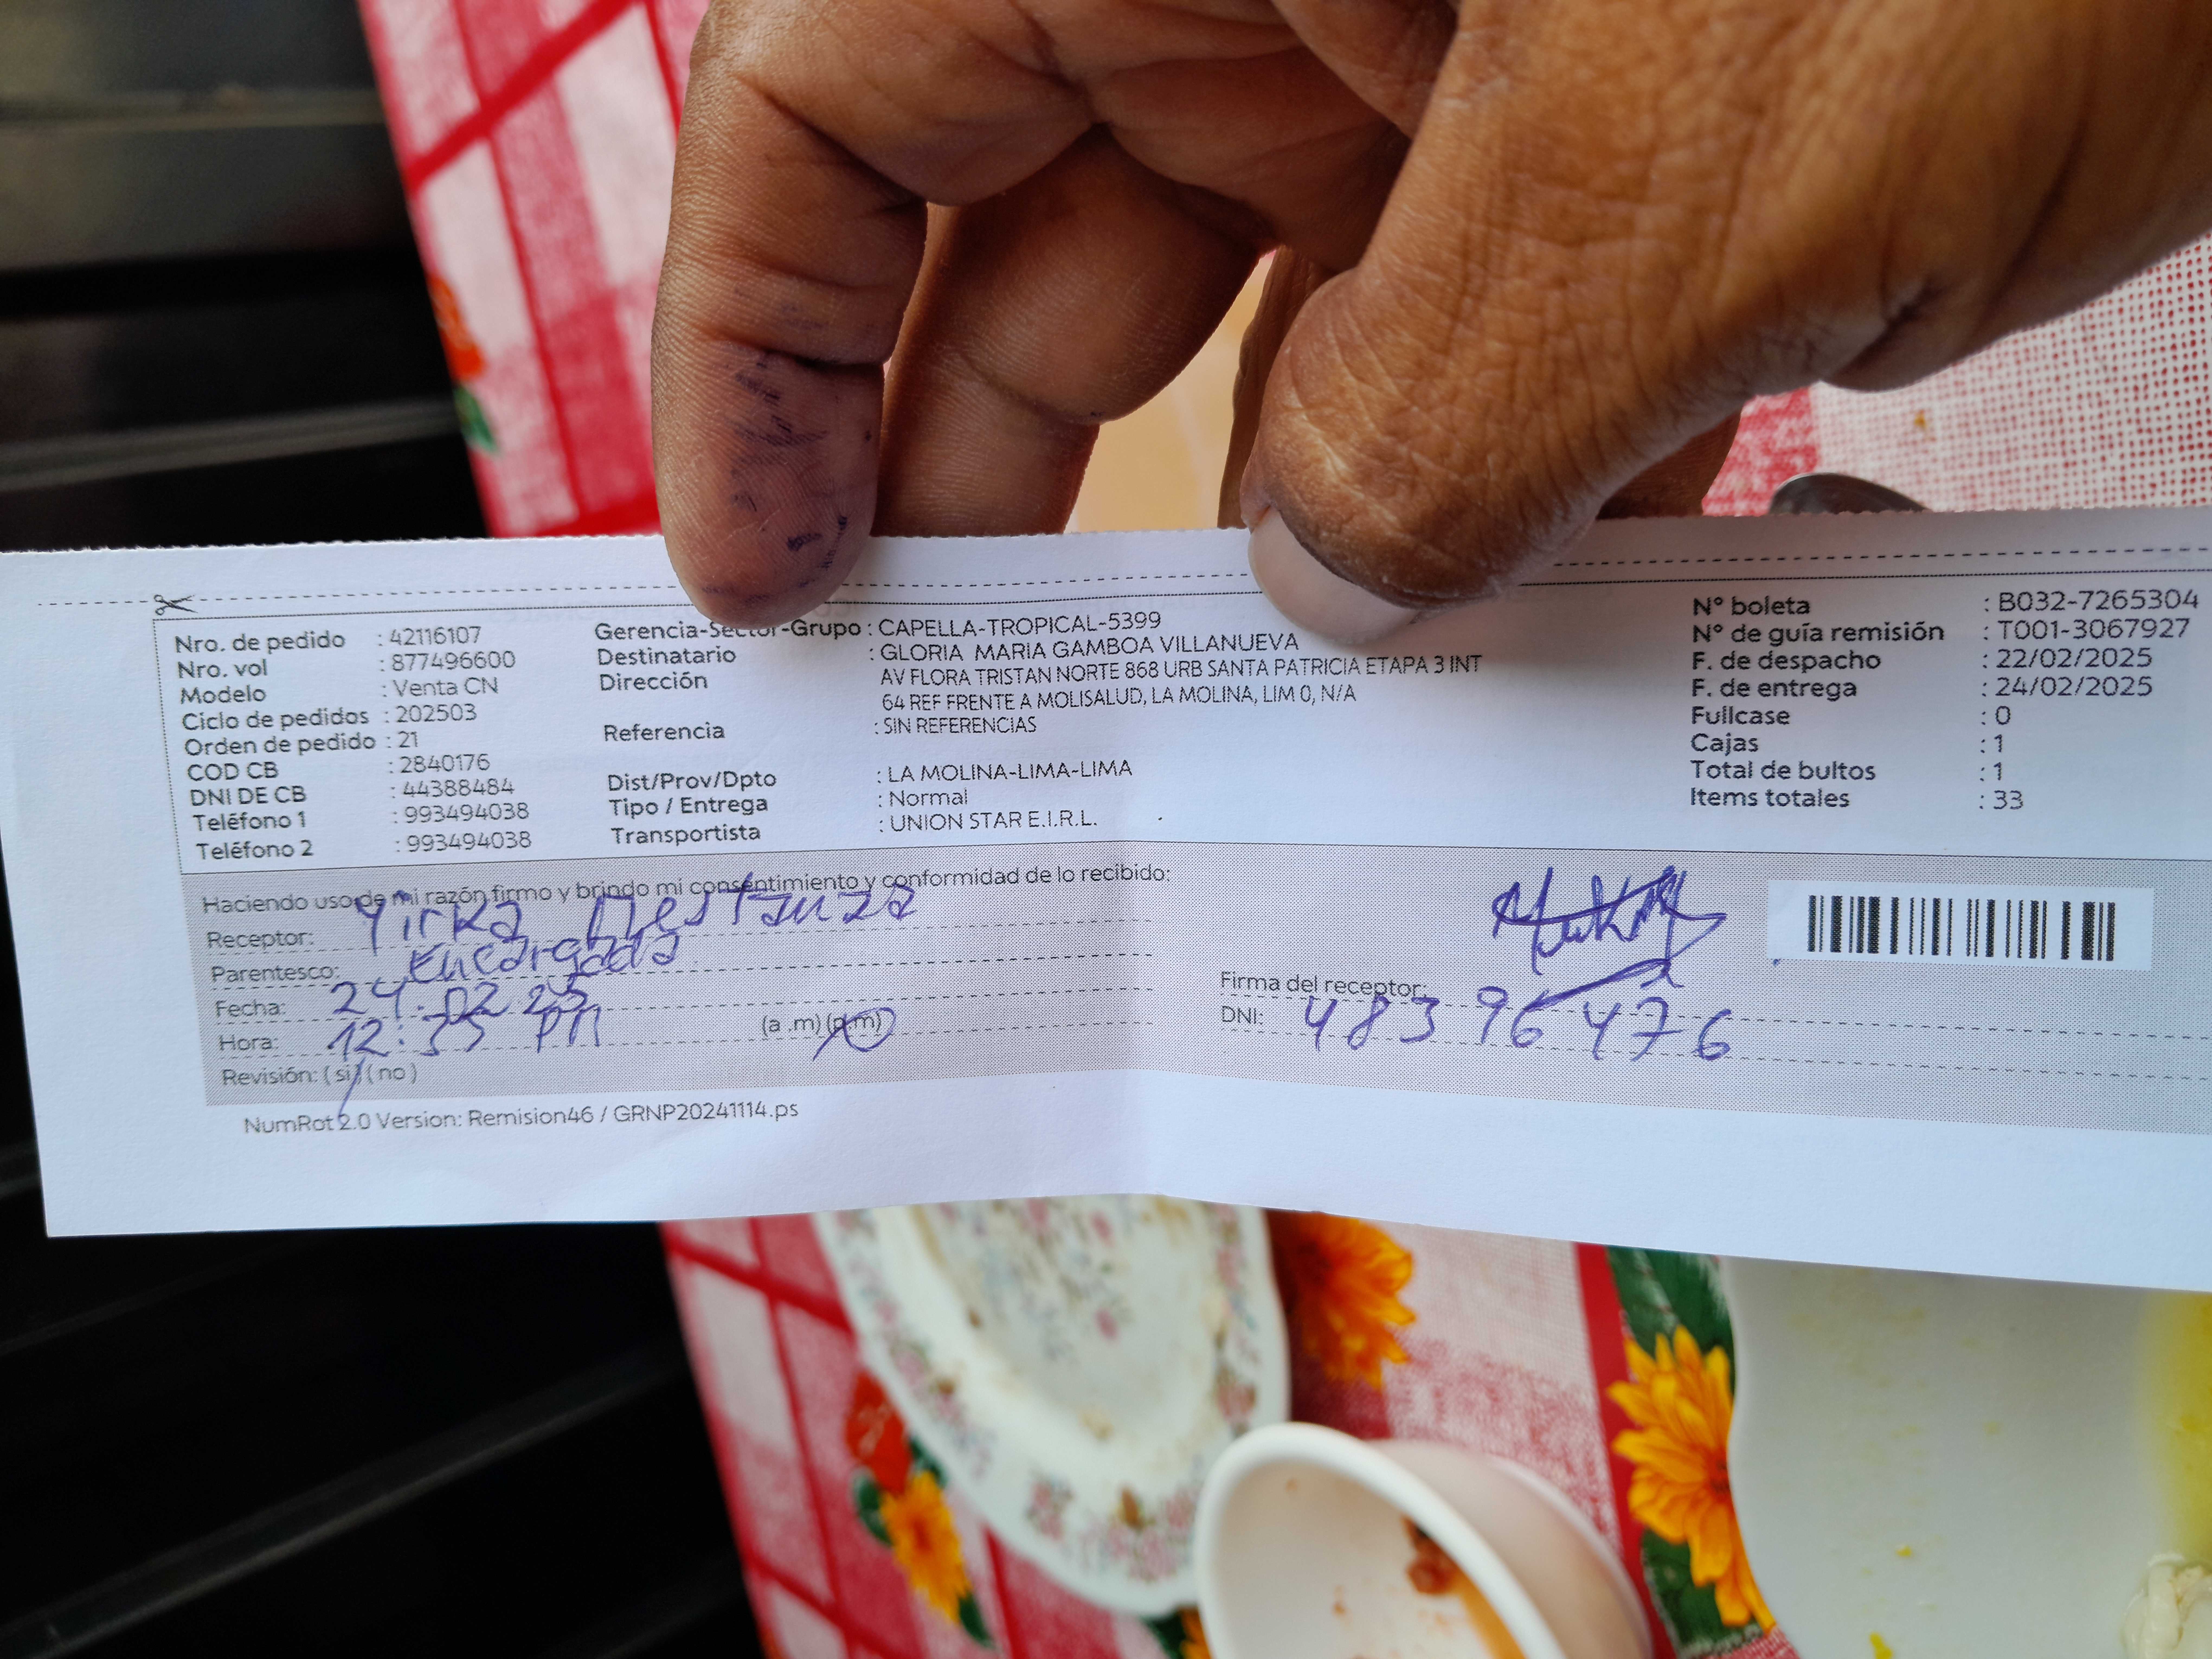 Nro. de pedido : 42116107
Nro. vol : 877496600
Modelo : Venta CN
Ciclo de pedidos : 202503
Orden de pedido : 21
COD CB : 2840176
DNI DE CB : 44388484
Teléfono 1 : 993494038
Teléfono 2 : 993494038
Gerencia-Sector-Grupo : CAPELLA-TROPICAL-5399
Destinatario : GLORIA MARIA GAMBOA VILLANUEVA
Dirección AV FLORA TRISTAN NORTE 868 URB SANTA PATRICIA ETAPA 3 INT
64 REF FRENTE A MOLISALUD, LA MOLINA, LIM 0, N/A
Referencia : SIN REFERENCIAS
Dist/Prov/Dpto : LA MOLINA-LIMA-LIMA
Tipo / Entrega : Normal
Transportista : UNION STAR E.I.R.L.
N° boleta : B032-7265304
N° de guía remisión : T001-3067927
F. de despacho : 22/02/2025
F. de entrega : 24/02/2025
Fullcase : 0
Cajas : 1
Total de bultos : 1
Items totales : 33
Haciendo uso de mi razón firmo y brindo mi consentimiento y conformidad de lo recibido:
Receptor: Yirka Mestanza
Parentesco: Encargada
Fecha: 24.02 25
Hora: 12:35 PM (a .m) (p.m)
Revisión: ( si ) ( no )
Firma del receptor:
DNI: 48396476
NumRot 2.0 Version: Remision46 / GRNP20241114.ps